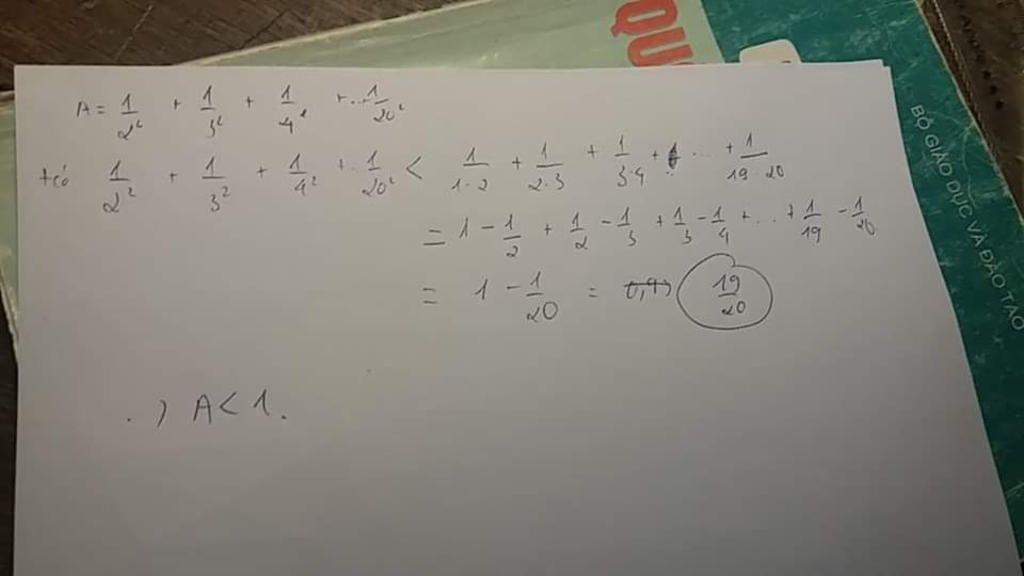 QU
BỘ GIÁO DỤC VÀ ĐÀO TẠO
A = 1/2² + 1/3² + 1/4² + ... 1/20²
+ có 1/2² + 1/3² + 1/4² + .. 1/20² < 1/1·2 + 1/2·3 + 1/3·4 + ... + 1/19·20
= 1 - 1/2 + 1/2 - 1/3 + 1/3 - 1/4 + ... + 1/19 - 1/20
= 1 - 1/20 = 19/20
.) A < 1.